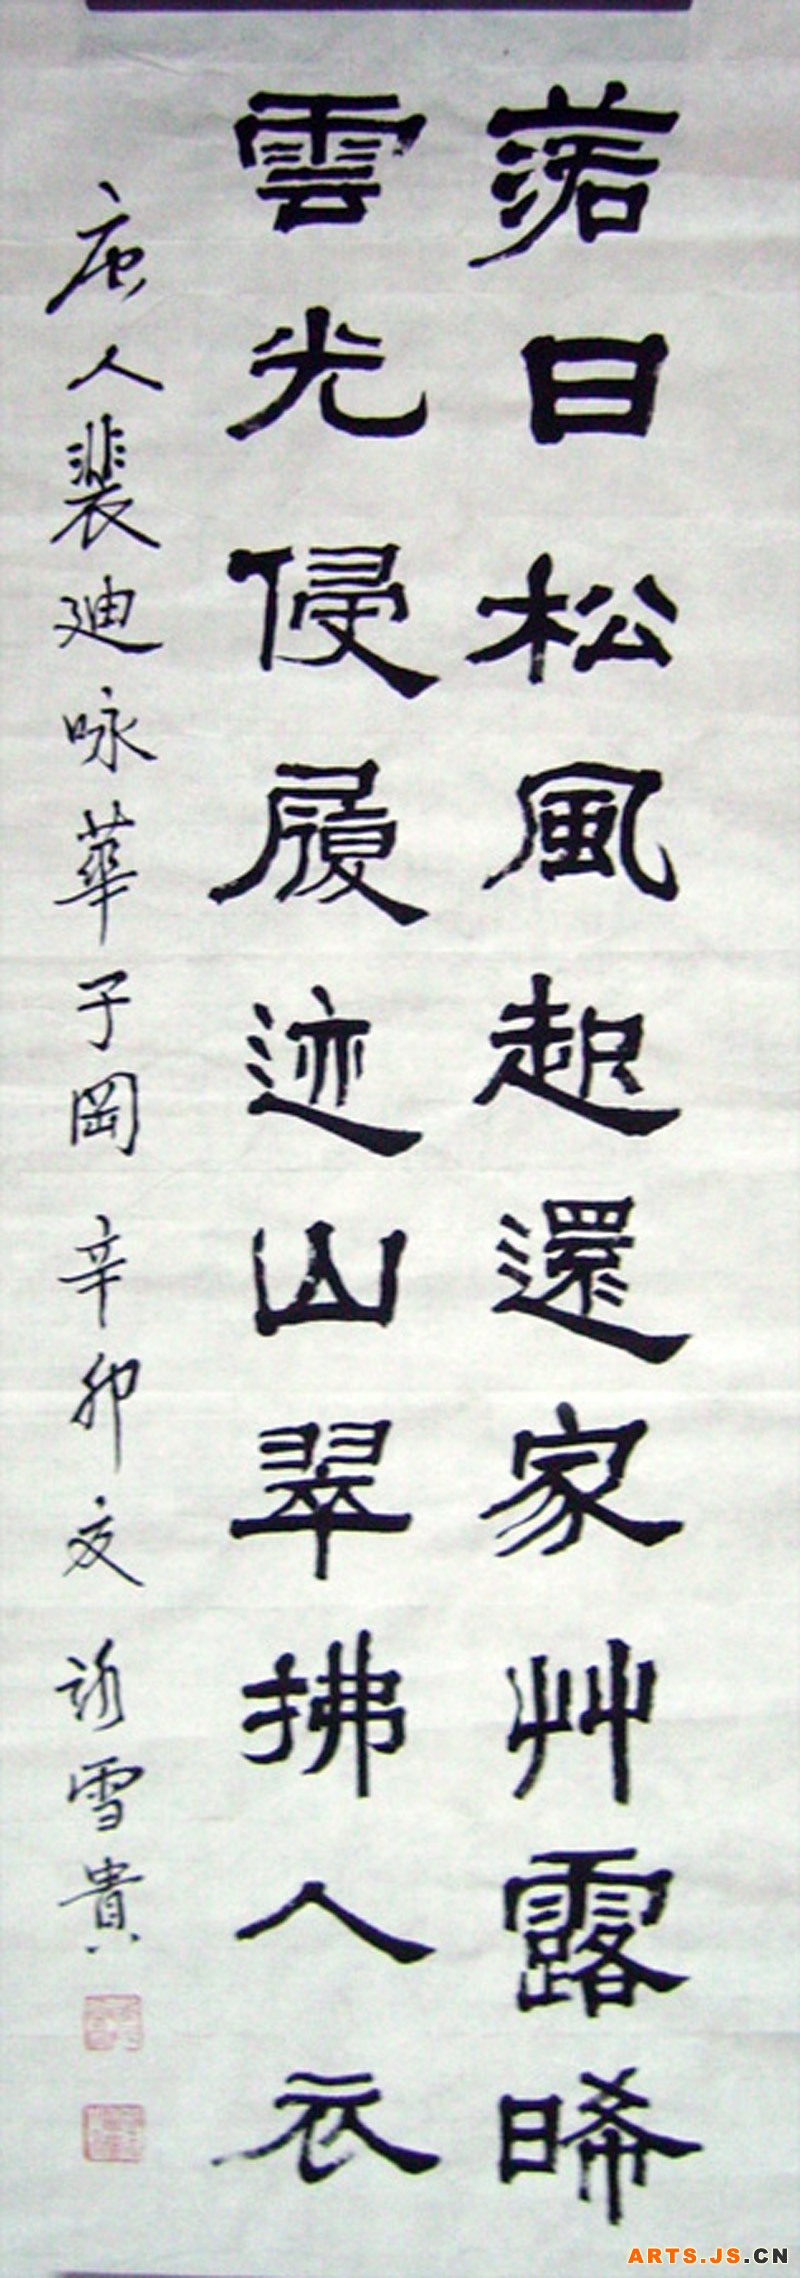 落日松風起還家艸露晞
雲光侵履迹山翠拂人衣
唐人裴迪咏華子岡 辛卯夏 雪貴
ARTS.JS.CN